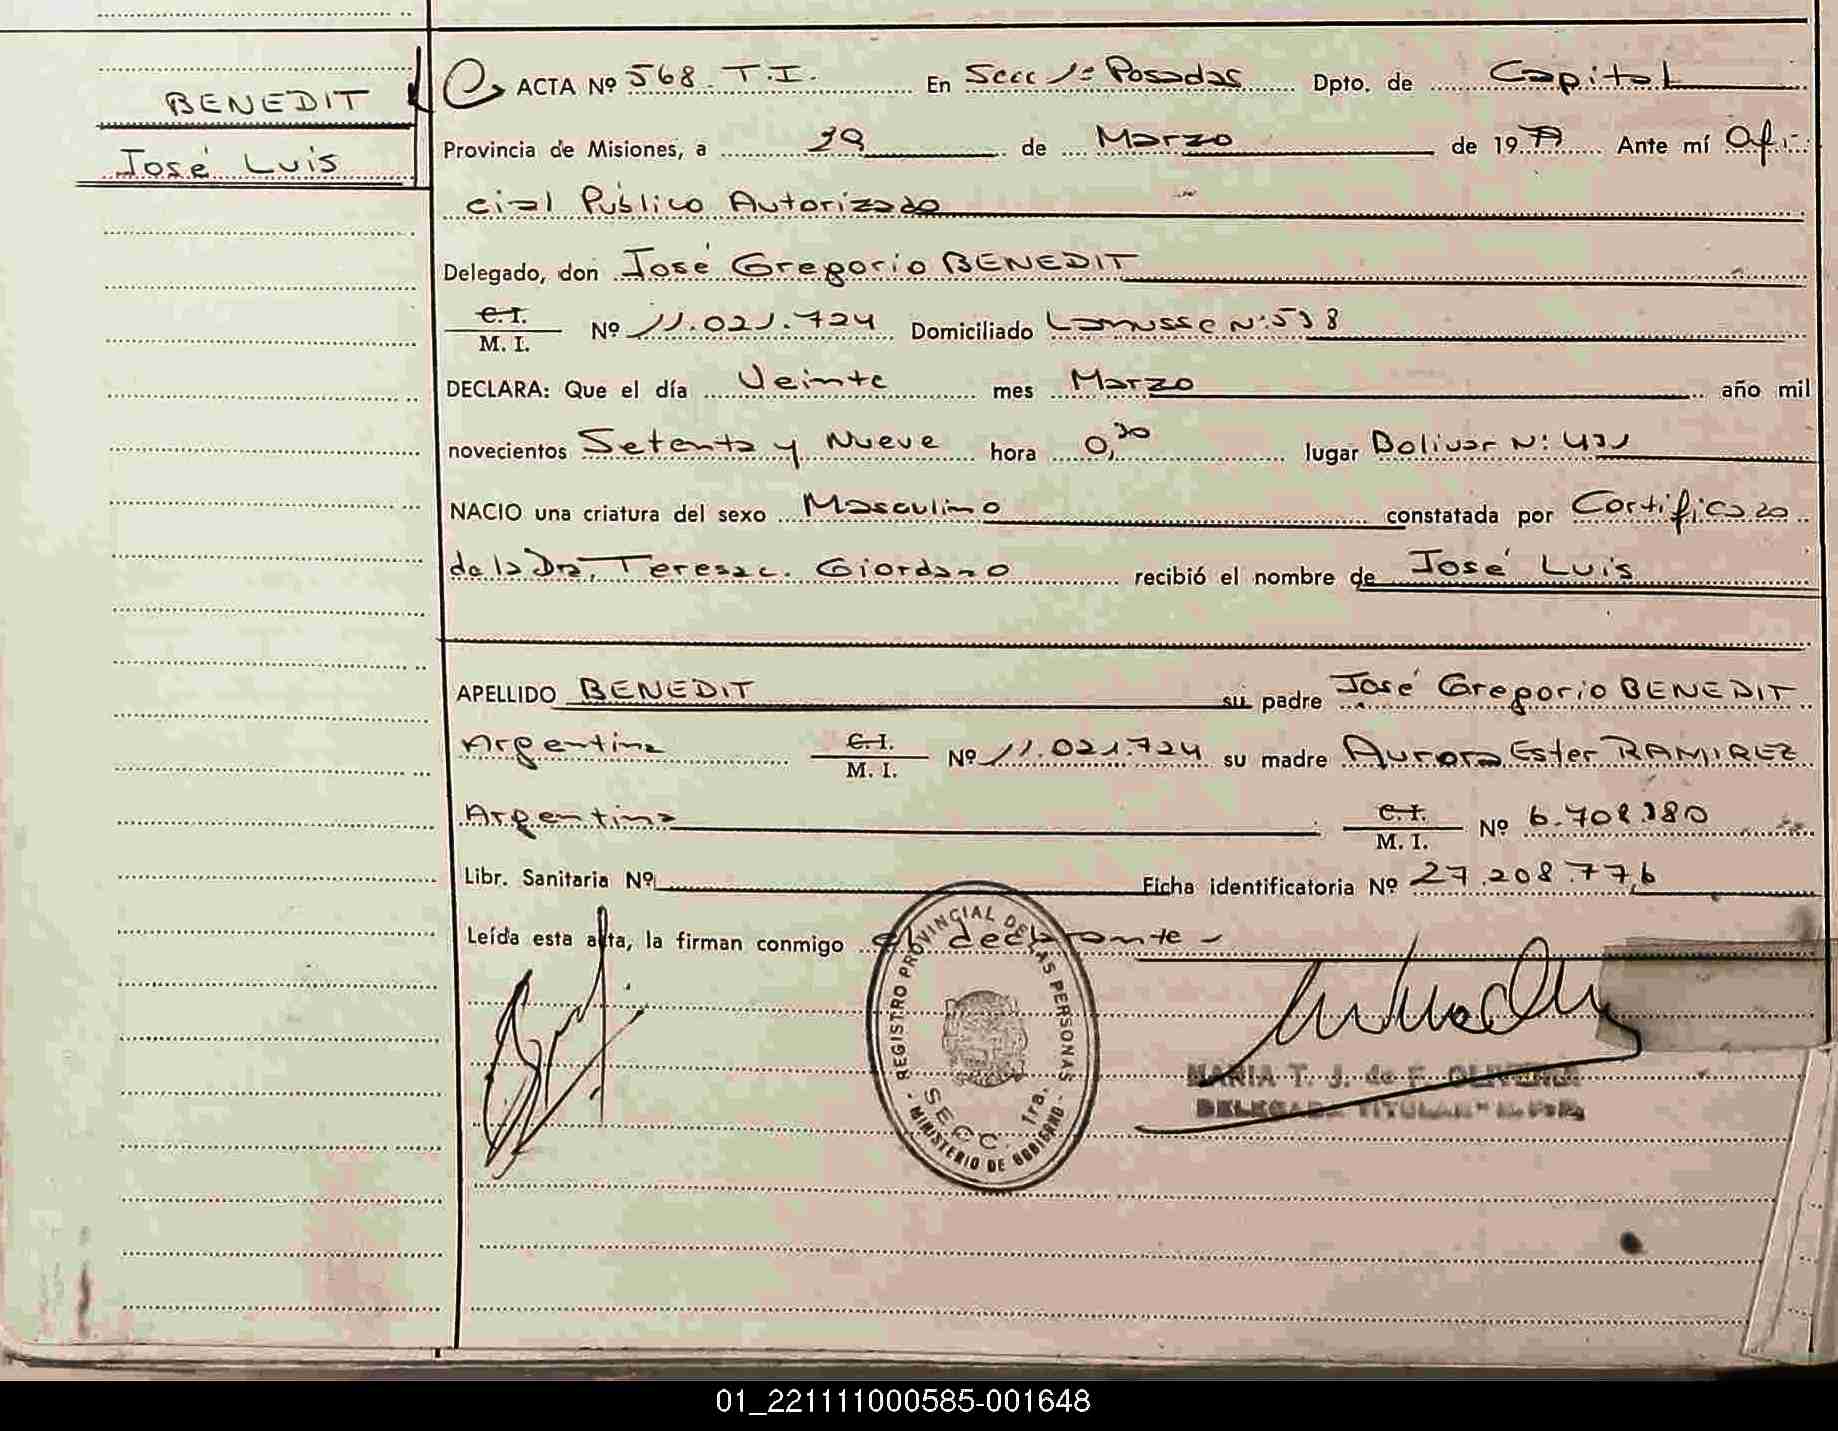 BENEDIT
José Luis
ACTA Nº 568. T.I. En Secc 1ª Posadas Dpto. de Capital
Provincia de Misiones, a 29 de Marzo de 1979 Ante mí Ofi
cial Público Autorizado
Delegado, don José Gregorio BENEDIT
C.I.
M. I. Nº 11.021.724 Domiciliado Lanusse Nº 538
DECLARA: Que el día Veinte mes Marzo año mil
novecientos Setenta y Nueve hora 0,30 lugar Bolivar Nº 431
NACIO una criatura del sexo Masculino constatada por Certificado
de la Dra. Teresa C. Giordano recibió el nombre de José Luis
APELLIDO BENEDIT su padre José Gregorio BENEDIT
Argentina C.I. M. I. Nº 11.021.724 su madre Aurora Ester RAMIREZ
Argentina C.I. M. I. Nº 6.708.380
Libr. Sanitaria Nº Ficha identificatoria Nº 27.208.776
Leída esta acta, la firman conmigo el declarante
REGISTRO PROVINCIAL DE LAS PERSONAS
SECC. 1ra.
- MINISTERIO DE GOBIERNO -
MARIA T. J. de F. OLIVERA
DELEGADA TITULAR
01_221111000585-001648